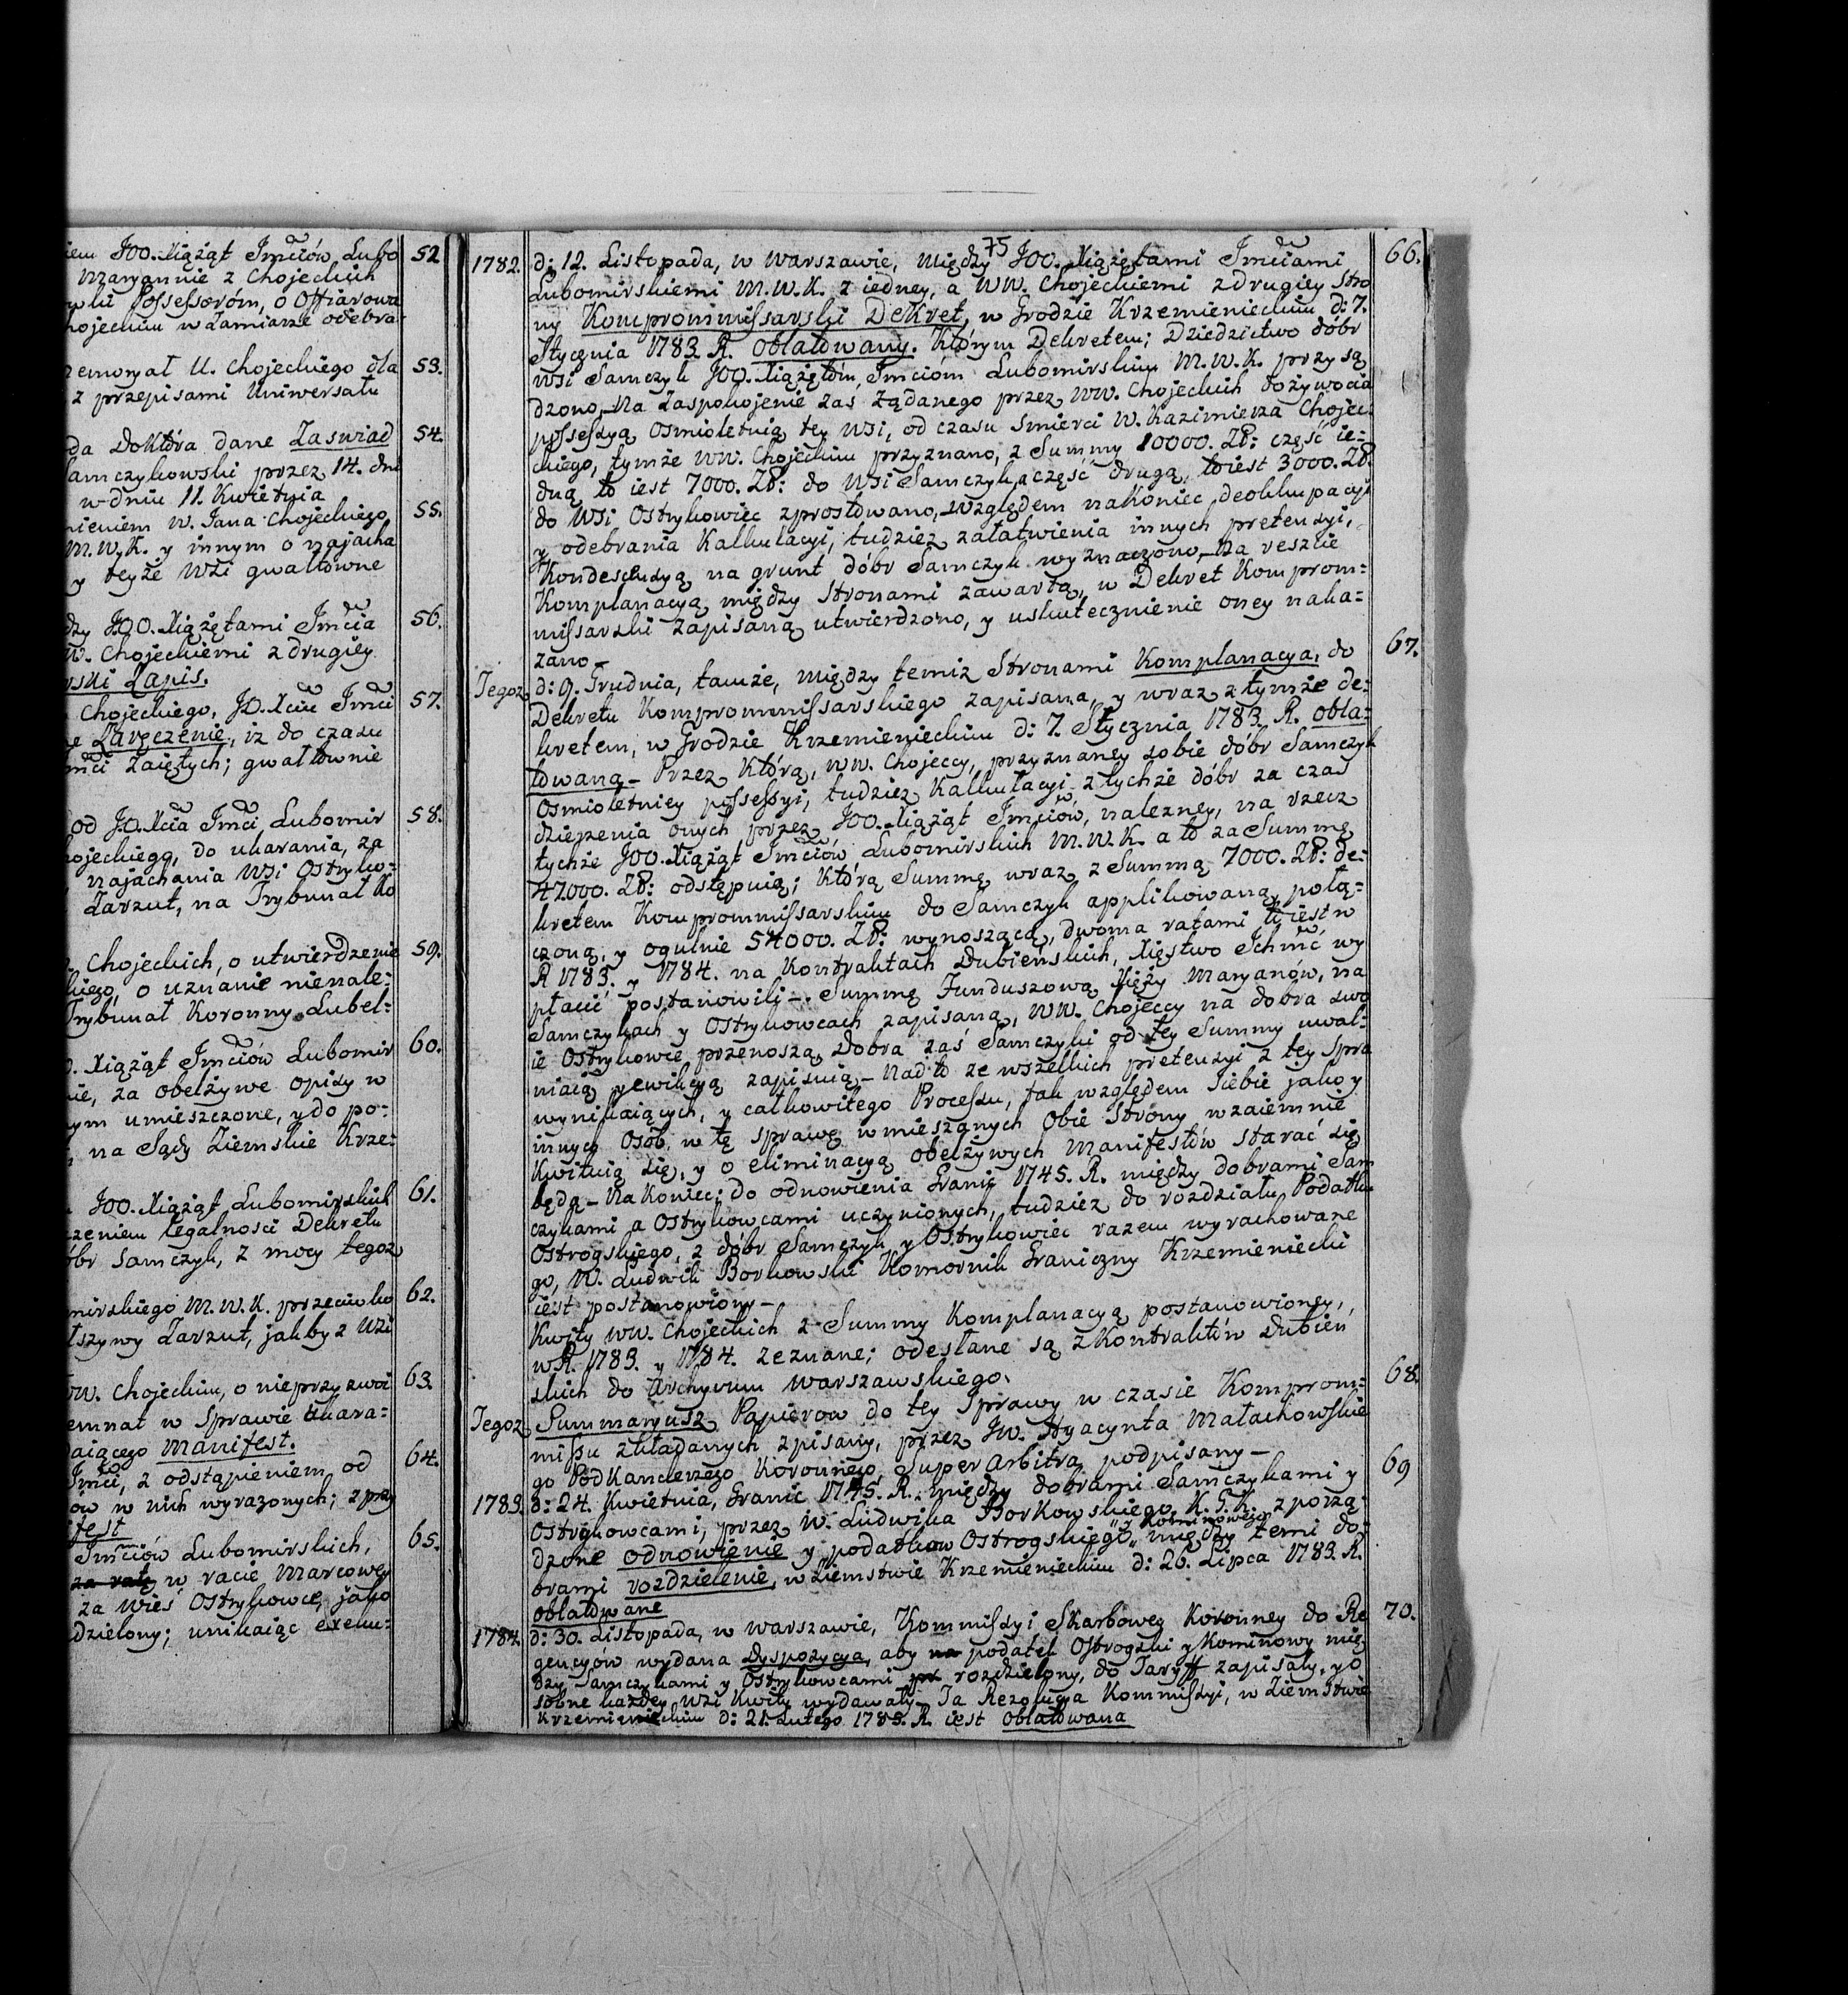 iem JOO. Xiążąt Jmciów Lubo 52
wzaiemnie z Chojeckich
Possessorom, o Offiarowa
hojeckim w Zamiarze odebra
memoryał U. Chojeckiego dla 53.
z przepisami Uniwersału
da Doktóra dane Zaswiad 54.
amczykowski przez 14. dni
w dniu 11. Kwietnia
nieniem W. Jana Chojeckiego 55.
M.W.K. y innym o najacha
y teyże Wsi gwałtówne
dzy JOO. Xiążętami Jmcia 56.
W. Chojeckiemi z drugiey
rski Zapis.
Chojeckiego, JO. Xciu Jmci 57.
e Zaręczenie, iż do czasu
mci zaiętych; gwałtównie
od JO. Xcia Jmci Lubomir 58.
hojeckiego, do ukarania, za
najachania Wsi Ostryko=
Zarzut, na Trybunał Ko
Chojeckich, o utwierdzenie 59.
kiego, o uznanie nienale=
Trybunał Koronny Lubel=
O. Xiążąt Jmciów Lubomir 60.
nie, za obelżywe opisy w
ym umieszczone, y do po=
na Sądy Ziemskie Krze=
JOO. Xiążąt Lubomirskich 61.
czeniem legalnosci Dekretu
óbr Samczyk, z mocy tegoż
mirskiego M.W.K. przeciwko 62.
łszywy Zarzut, jakby z Wsi
WW. Chojeckim, o nieprzyzwoi 63.
emnał w Sprawie Ukara=
daiącego Manifest.
Jmci, z odstąpieniem od 64.
ów w nich wyrazonych; z przy
ifest
Jmciów Lubomirskich, 65.
za ratę w racie Marcowey
za Wieś Ostrykowce, jako
dzielony; unikaiąc exeku=
75
1782. d: 12. Listopada, w Warszawie, między JOO. Xiążętami Jmciami 66.
Lubomirskiemi M.W.K. z iedney, a WW. Chojeckiemi z drugiey Stro
ny Kompromissarski Dekret, w Grodzie Krzemienieckim d: 7.
Stycznia 1783. R. oblatowany. Którym Dekretem; Dziedzictwo dóbr
wsi Samczyk JOO. Xiążętóm Jmcióm Lubomirskim M.W.K. przysą
dzono, Na Zaspokojenie zas żądanego przez WW. Chojeckich dożywocia
possessyą osmioletnią tey wsi, od czasu smierci W. Kazimierza Chojec=
kiego, tymże WW. Chojeckim przyznano, z Summy 10000. Zł: część ie=
dną to iest 7000. Zł: do Wsi Samczyk, a część drugą, to iest 3000. Zł.
do Wsi Ostrykowiec zprostowano, względem nakoniec deokkupacyi
y odebrania Kalkulacyi, tudzież załatwienia innych pretensyi,
Kondescensyą na grunt dóbr Samczyk wyznaczono, Na reszcie
Komplanacyą między Stronami zawartą, w Dekret Komprom=
missarski zapisaną utwierdzono, y uskutecznienie oney naka=
zano –
Tegoż d: 9. Grudnia, tamże, między temiż Stronami Komplanacya, do 67.
Dekretu Kompromissarskiego zapisana, y wraz z tymże de=
kretem, w Grodzie Krzemienieckim d: 7. Stycznia 1783. R. obla=
towana – Przez którą, WW. Chojeccy, przyznaney sobie dóbr Samczyk
osmioletniey possessyi, tudzież Kalkulacyi z tychże dóbr za czas
dzierżenia onych przez JOO. Xiążąt Jmciów, należney, na rzecz
tychże JOO. Xiążąt Jmciów Lubomirskich M.W.K. a to za Summę
47000. Zł: odstępuią; którą Summę wraz z Summą 7000. Zł: de=
kretem Kompromissarskim do Samczyk applikowaną, połą=
czoną, y ogulnie 54000. Zł: wynoszącą, dwoma ratami to iest w
R 1783. y 1784. na Kontraktach Dubienskich, Xięstwo Ichmć wy
płacić postanowili –. Summę Funduszową Xięży Maryanów, na
Samczykach y Ostrykowcach zapisaną, WW. Chojeccy na dobra swo
ie Ostrykowce przenoszą, Dobra zaś Samczyki od tey Summy uwal=
niaią y ewikcyą zapisuią – Nad to ze wszelkich pretensyi z tey Spra
wynikaiących, y całkowitego Processu, tak względem siebie jako y
innych Osób w tę sprawę wmieszanych Obie Strony wzaiemnie
Kwituią się, y o eliminacyą obelżywych Manifestów starać się
będą – Na koniec; do odnowienia Granic 1745. R. między dobrami Sam
czykami a Ostrykowcami uczynionych, tudzież do rozdziału Podatku
Ostrogskiego, z dóbr Samczyk y Ostrykowiec razem wyrachowane
go, W. Ludwik Borkowski Komornik Graniczny Krzemieniecki
iest postanowiony –
Kwity WW. Chojeckich z Summy Komplanacyą postanowioney,
w R. 1783. y 1784. zeznane; odesłane są z Kontraktów Dubien
skich do Archyvum Warszawskiego.
Tegoż Summaryusz Papierow do tey Sprawy w czasie Komprom= 68.
missu zkładanych zpisany, przez JW. Hyacynta Małachowskie
go Podkanclerzego Koronnego, Super Arbitra podpisany –
1783. d: 24. Kwietnia, Granic 1745. R. między dobrami Samczykami y 69
Ostrykowcami, przez W. Ludwika Borkowskiego K. G. K. zporzą=
dzone odnowienie y podatków Ostrogskiego „y Kominowego„ między temi do=
brami rozdzielenie, w Ziemstwie Krzemienieckim d: 26. Lipca 1783. R.
oblatowane
1784. d: 30. Listopada, w Warszawie, Kommissyi Skarbowey Koronney do Re 70.
gencyow wydana Dyspozycya, aby na podatek Ostrogski y Kominowy mię
dzy Samczykami y Ostrykowcami rozdzielony, do Taryff zapisały, y o
sobne każdey wsi kwity wydawały – Ta Rezolucya Kommissyi, w Ziemstwie
Krzemienieckim d: 21. Lutego 1785. R. iest oblatowana